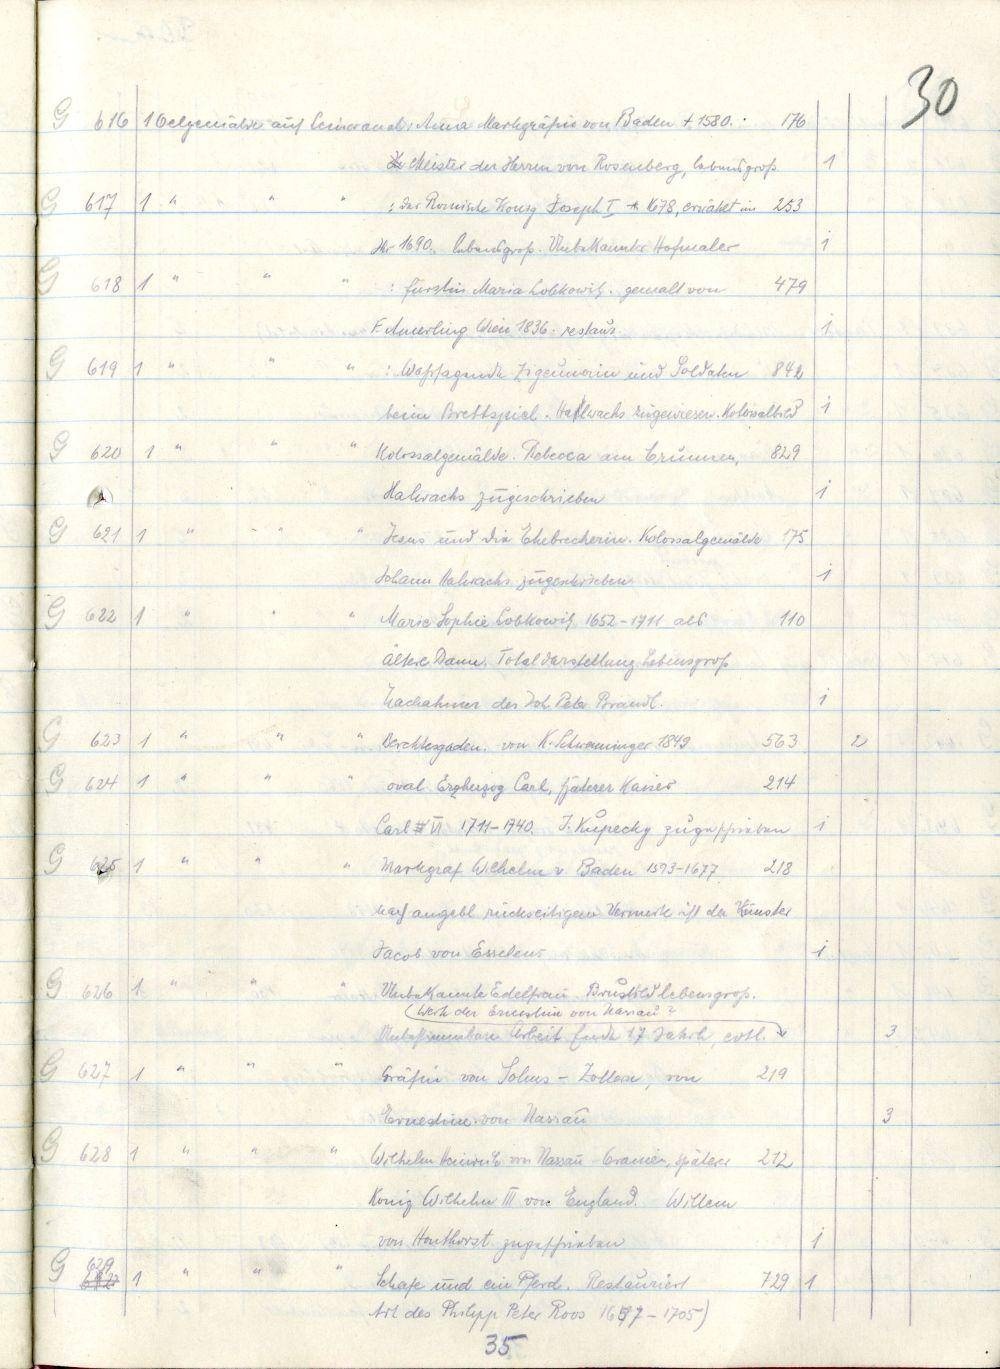 30
G 616 1 Oelgemälde auf Leinwand: Anna Markgräfin von Baden + 1580. 176
Meister der Herren von Rosenberg, lebensgroß 1
G 617 1 " " " : der Römische König Joseph I * 1678, erwählt im 253
1690. lebensgroß. Unbekannter Hofmaler 1
G 618 1 " " " : Fürstin Maria Lobkowitz. gemalt von 479
F. Amerling Wien 1836. restaur. 1
G 619 1 " " " : Wahrsagende Zigeunerin und Soldaten 842
beim Brettspiel. Halwachs zugewiesen. Kolossalbild 1
G 620 1 " " " Kolossalgemälde. Rebecca am Brunnen, 829
Halwachs zugeschrieben 1
G 621 1 " " " Jesus und die Ehebrecherin. Kolossalgemälde 175
Johann Halwachs zugeschrieben 1
G 622 1 " " " Marie Sophie Lobkowitz 1652-1711 als 110
ältere Dame. Totaldarstellung Lebensgroß
Nachahmer des Joh. Peter Brandl. 1
G 623 1 " " " Berchtesgaden. von K. Schweninger 1849 563 2
G 624 1 " " " oval Erzherzog Carl, späterer Kaiser 214
Carl VI 1711-1740. J. Kupecky zugeschrieben 1
G 625 1 " " " Markgraf Wilhelm v. Baden 1593-1677 218
nach angebl. rückseitigem Vermerk ist der Künster
Jacob von Esselens 1
G 626 1 " " " Unbekannte Edelfrau. Brustbild lebensgroß.
(Werk der Ernestine von Nassau?
Unbestimmbare Arbeit Ende 17 Jahrh, evtl. 3
G 627 1 " " " Gräfin von Solms - Zollern, von 219
Ernestine von Nassau 3
G 628 1 " " " Wilhelm Heinrich von Nassau - Oranien, späterer 212
König Wilhelm III von England. Willem
von Honthorst zugeschrieben 1
G 629 1 " " " Schafe und ein Pferd. Restauriert 729 1
Art des Philipp Peter Roos 1657-1705)
35